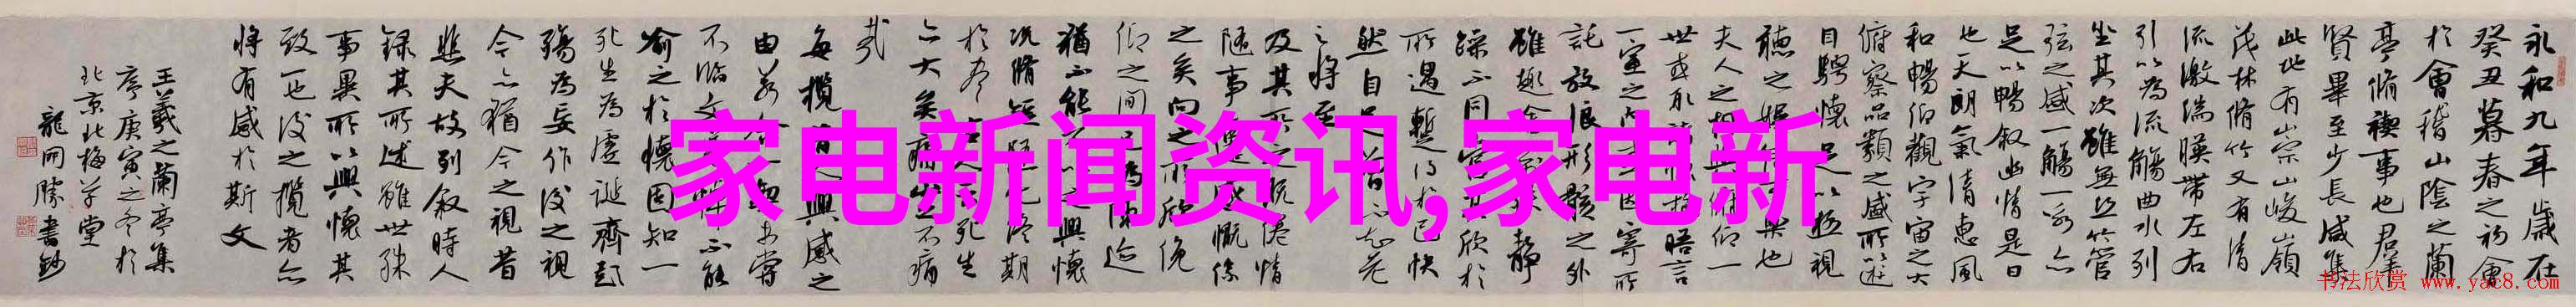 永和九年歲在
癸丑暮春之初會
於會稽山陰之蘭
亭脩稧事也群
賢畢至少長咸集
此地有崇山峻嶺
茂林脩竹又有清
流激湍暎帶左右
引以為流觴曲水列
坐其次雖無絲竹管
弦之盛一觴一詠亦
足以暢敘幽情是日
也天朗氣清惠風
和暢仰觀宇宙之大
俯察品類之盛所以遊
目騁懷足以極視
聽之娛 樂也
夫人之相 俯仰一
世或取 晤言
一室之內 因寄所
託放浪形骸之外
雖趣 靜
躁不同 欣於
所遇蹔得於己快
然自足 老
之將至
及其所之既倦情
隨事遷 慨係
之矣向之所欣俛
仰之間 為陳迹
猶不能不以之興懷
況脩短 終期
於盡 死生
亦大矣 痛
哉
每攬 興感之
由若合 未嘗
不臨文 不能
喻之於懷固知一
死生為虛誕齊彭
殤為妄作後之視
今亦猶今之視昔
悲夫故列敘時人
錄其所述雖世殊
事異所以興懷其
致一也後之攬者亦
將有感於斯文
王羲之蘭亭集
序庚寅之冬於
北京北梅草堂
龍開勝書鈔
家电新闻资讯,家电新
书法欣赏 www.yac8.com